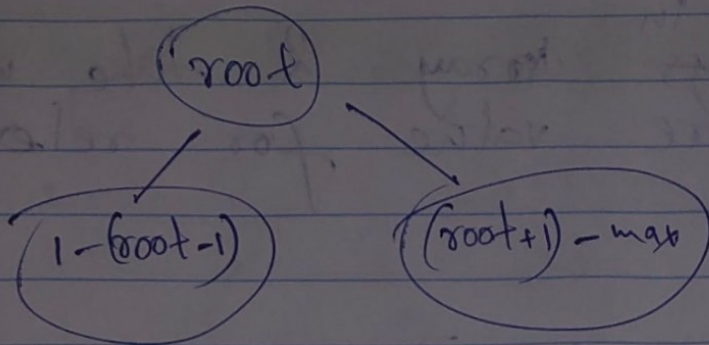 root
1-(root-1)
(root+1)-max